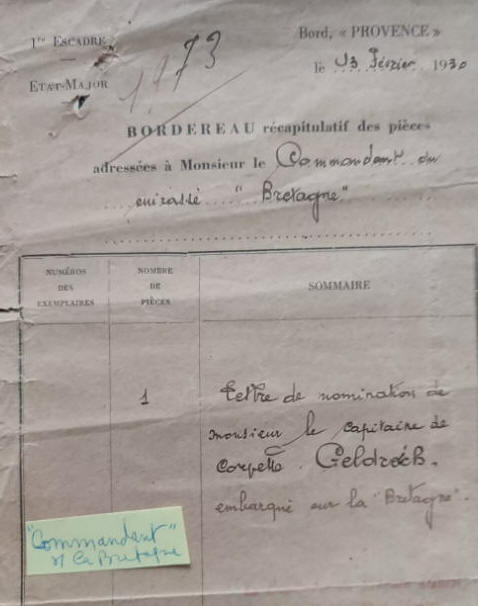 1re ESCADRE
ETAT-MAJOR
1.173
Bord, « PROVENCE »
le 13 Février 1930
BORDEREAU récapitulatif des pièces
adressées à Monsieur le Commandant du
cuirassé "Bretagne"
NUMÉROS
DES
EXEMPLAIRES
NOMBRE
DE
PIÈCES
SOMMAIRE
1
Lettre de nomination de
monsieur le capitaine de
Corvette
embarqué sur la "Bretagne".
"Commandant"
La Bretagne